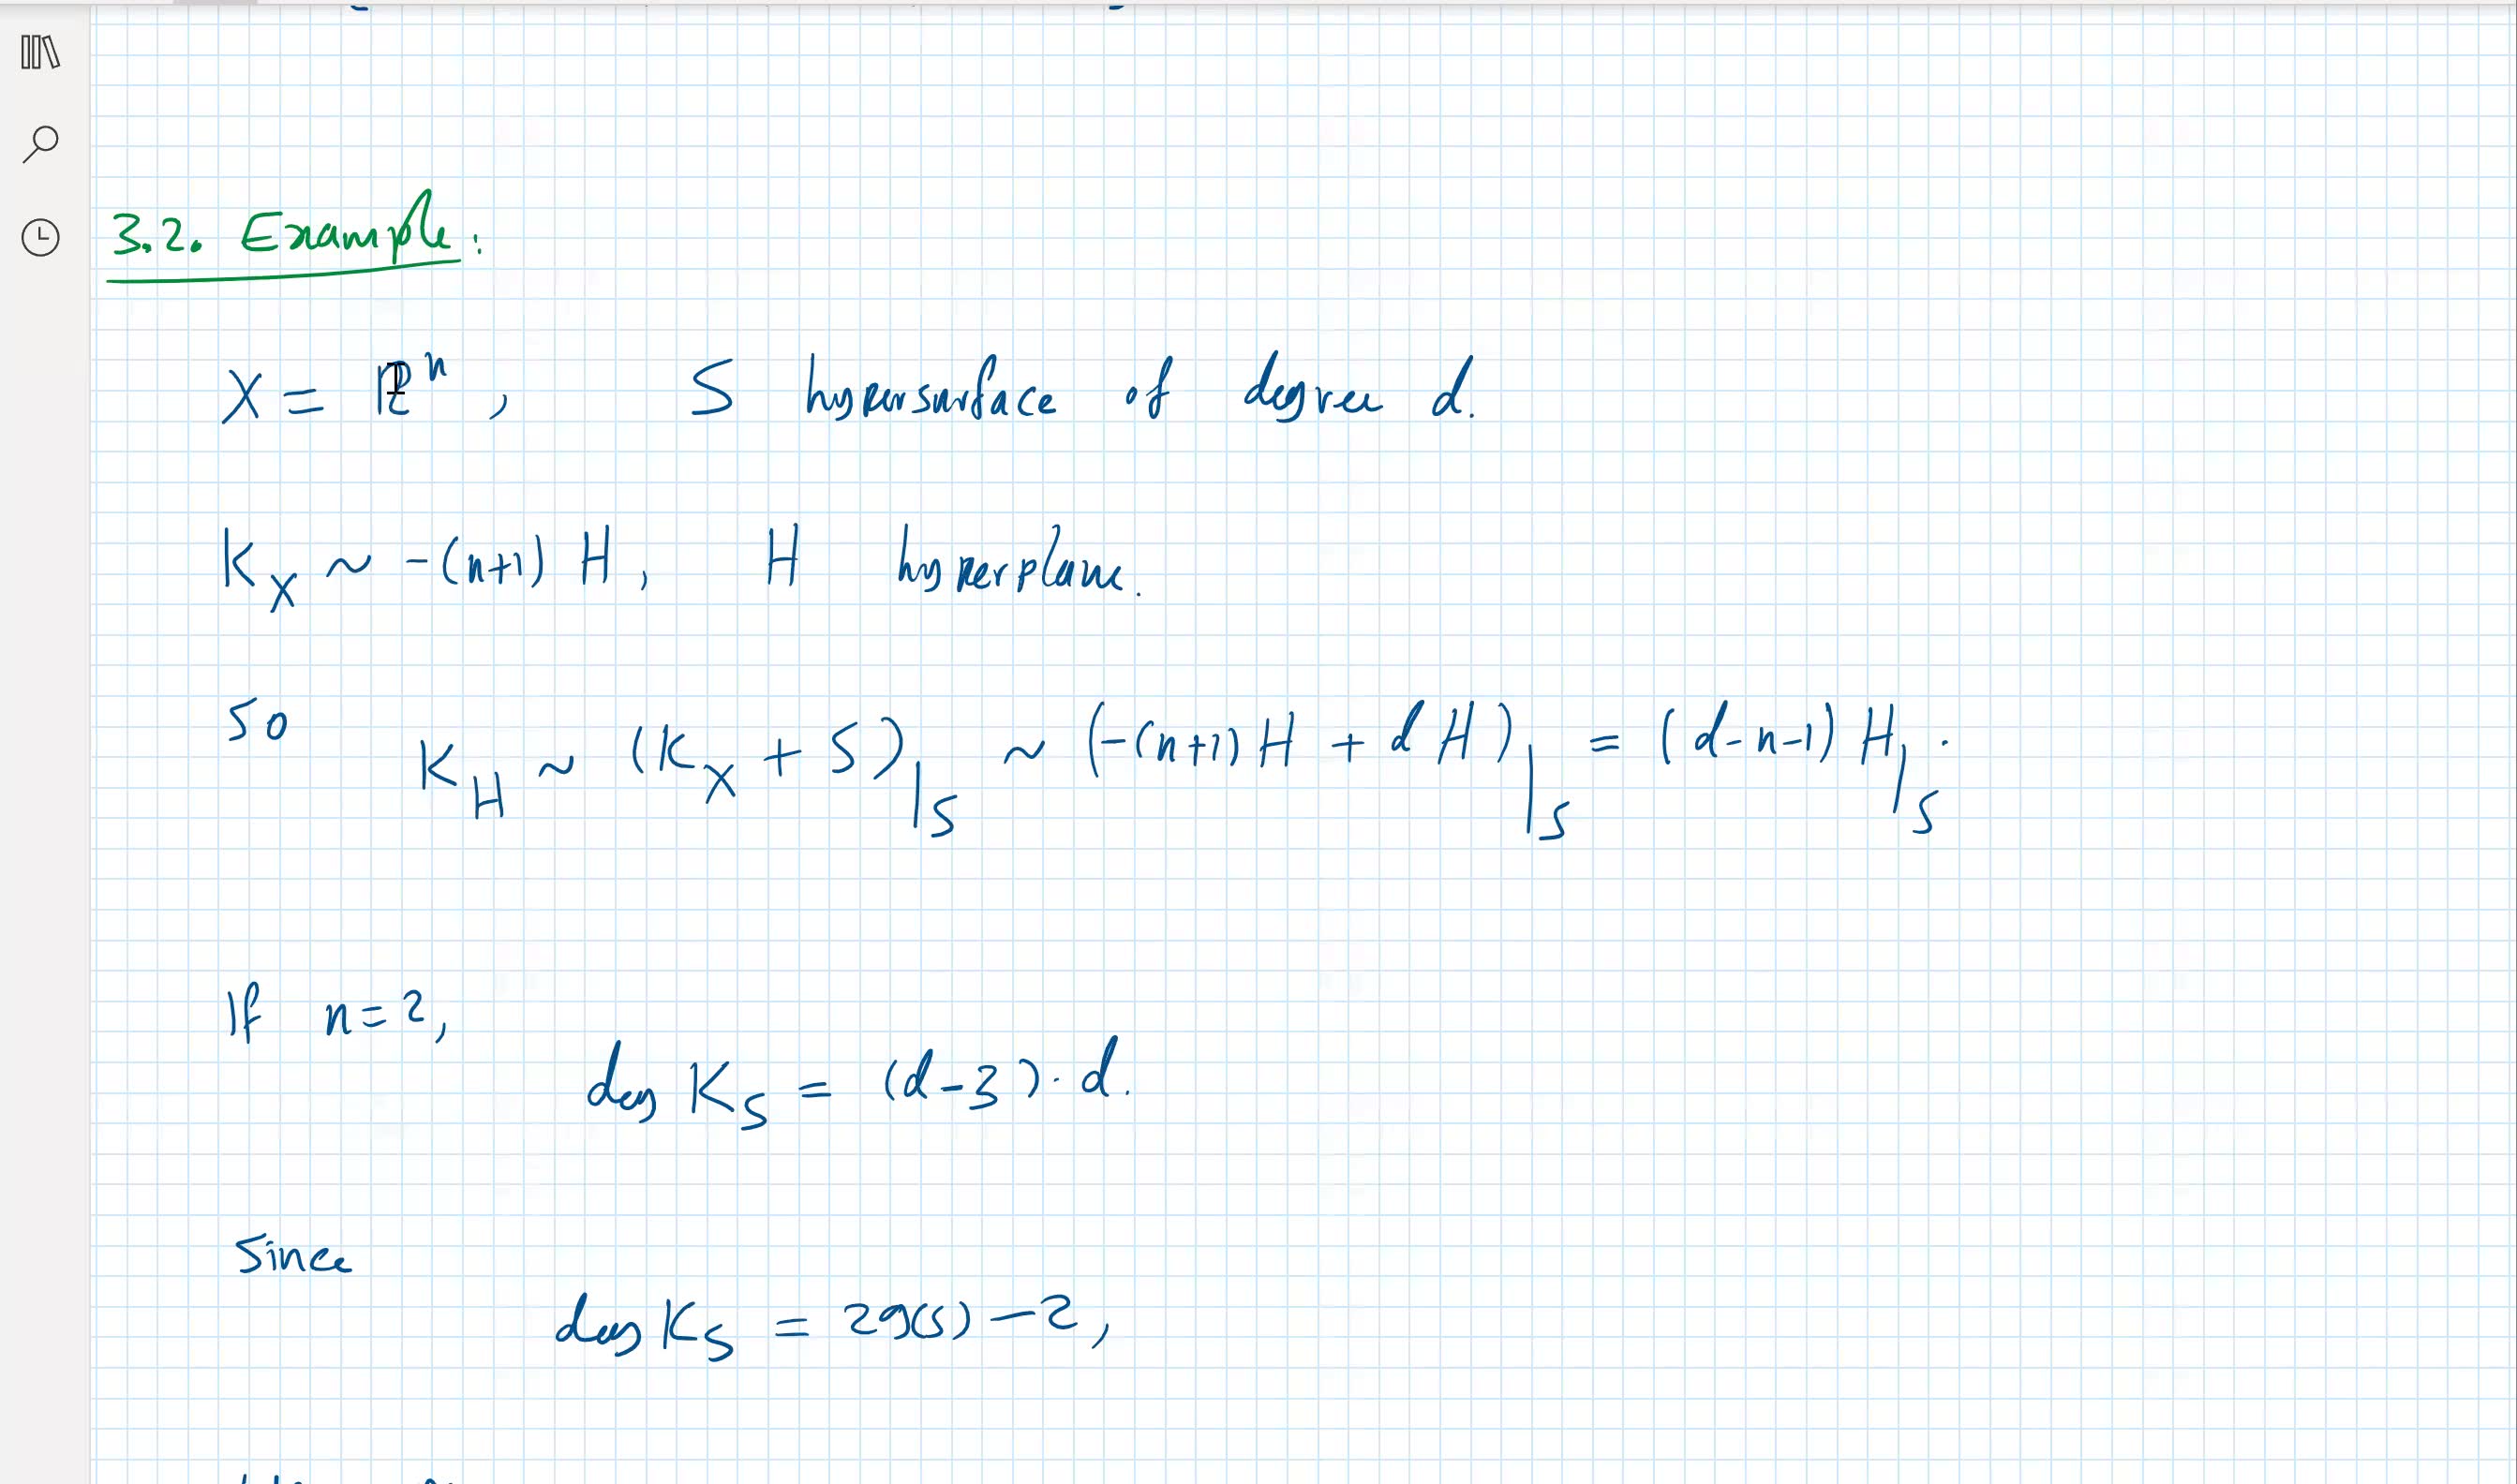 3.2. Example:
X = ℙⁿ, S hypersurface of degree d.
K_X ~ -(n+1) H, H hyperplane.
So K_H ~ (K_X + S)|_S ~ (-(n+1) H + d H)|_S = (d-n-1) H|_S.
If n=2,
deg K_S = (d-3)·d.
Since
deg K_S = 2g(S) - 2,